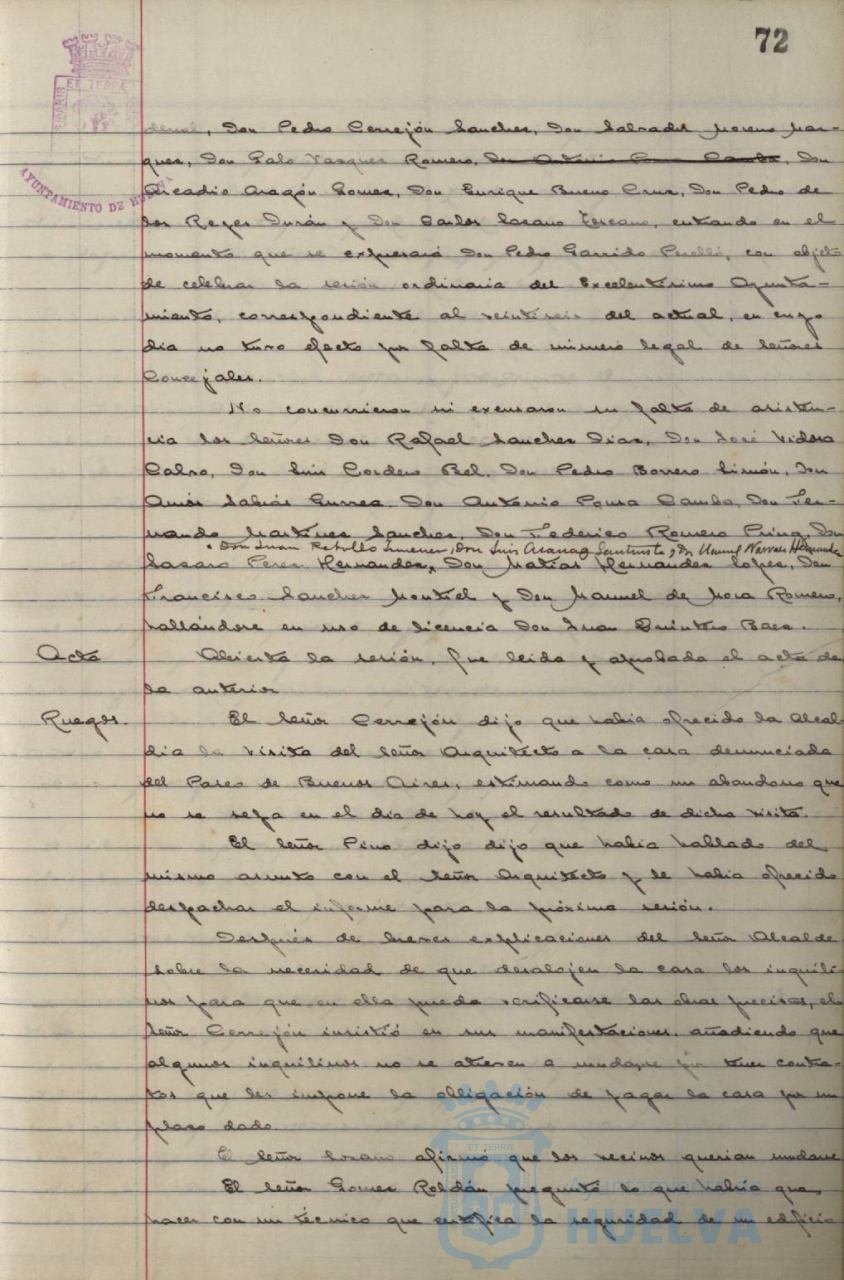 72
ET TERRA
AYUNTAMIENTO DE HUELVA
Don Pedro Cerrejón Sanchez, Don Salvador Moreno Mar-
quez, Don Galo Vazquez Romero, Don
Arcadio Aragón Gomez, Don Enrique Bueno Cruz, Don Pedro de
los Reyes Durán y Don Carlos Lozano Toscano, entrando en el
momento que se expresará Don Pedro Garrido Perelló, con objeto
de celebrar la sesión ordinaria del Excelentísimo Ayunta-
miento, correspondiente al veintiseis del actual, en cuyo
dia no tuvo efecto por falta de número legal de Señores
Concejales.
No concurrieron ni excusaron su falta de asisten-
cia los Señores Don Rafael Sanchez Diaz, Don José Vidosa
Calvo, Don Luis Cordero Bel, Don Pedro Borrero Limón, Don
Amós Sabrás Gurrea, Don Antonio Pousa Camba, Don Fer-
nando Martinez Sanchez, Don Federico Romero Don
Don Juan Rebollo Jimenez, Don Luis y Dn Manuel Narvaez Hernandez
Lazaro Perez Hernandez, Don Matías Hernandez Lopez, Don
Francisco Sanchez Montiel y Don Manuel de Mora Romero,
hallándose en uso de licencia Don Juan Quintero Baez.
Acta Abierta la sesión, fue leida y aprobada el acta de
la anterior
Ruegos. El Señor Cerrejón dijo que habia ofrecido la Alcal-
dia la visita del Señor Arquitecto a la casa denunciada
del Paseo de Buenos Aires, estimando como un abandono que
no se sepa en el dia de hoy el resultado de dicha visita.
El Señor Pino dijo dijo que habia hablado del
mismo asunto con el Señor Arquitecto y le habia ofrecido
despachar el informe para la próxima sesión.
Después de breves explicaciones del Señor Alcalde
sobre la necesidad de que desalojen la casa los inquili-
nos para que en ella pueda verificarse las obras precisas, el
Señor Cerrejón insistió en sus manifestaciones, añadiendo que
algunos inquilinos no se atreven a mudarse por tener contra-
tos que les impone la obligación de pagar la casa por un
plazo dado
El Señor Lozano afirmó que los vecinos querian mudarse
El Señor Gomez Roldán preguntó lo que habia que
hacer con un técnico que certifica la seguridad de un edificio
ET TERRA
HUELVA